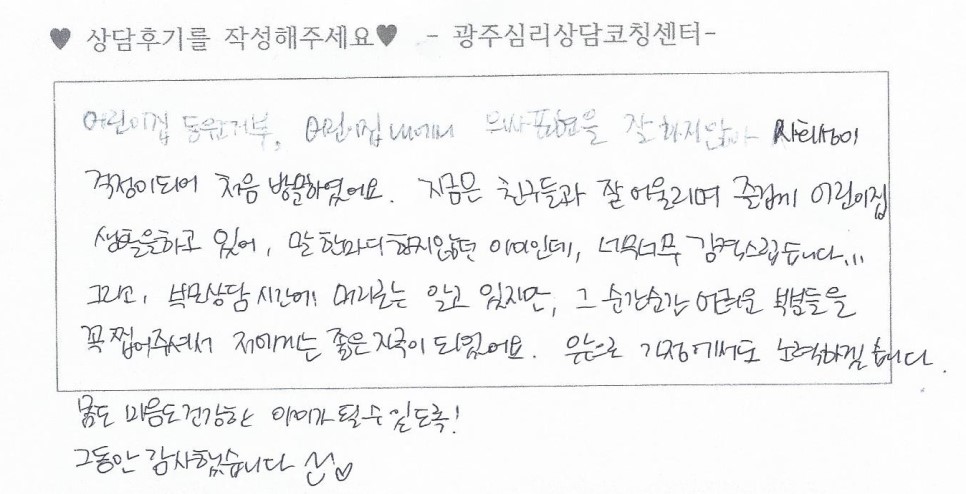 ♥ 상담후기를 작성해주세요♥ - 광주심리상담코칭센터-
어린이집 등원거부, 어린이집내에서 의사표현을 잘 하지않아 사회성이
걱정이되어 처음 방문하였어요. 지금은 친구들과 잘 어울리며 즐겁게 어린이집
생활을하고 있어, 말 한마디 하지않던 아이인데, 너무너무 감격스럽습니다...
그리고, 부모상담 시간에 머리로는 알고 있지만, 그 순간순간 어려운 부분들을
꼭 찝어주셔서 저에게는 좋은 자극이 되었어요. 앞으로 가정에서도 노력하겠습니다.
몸도 마음도 건강한 아이가 될 수 있도록!
그동안 감사했습니다